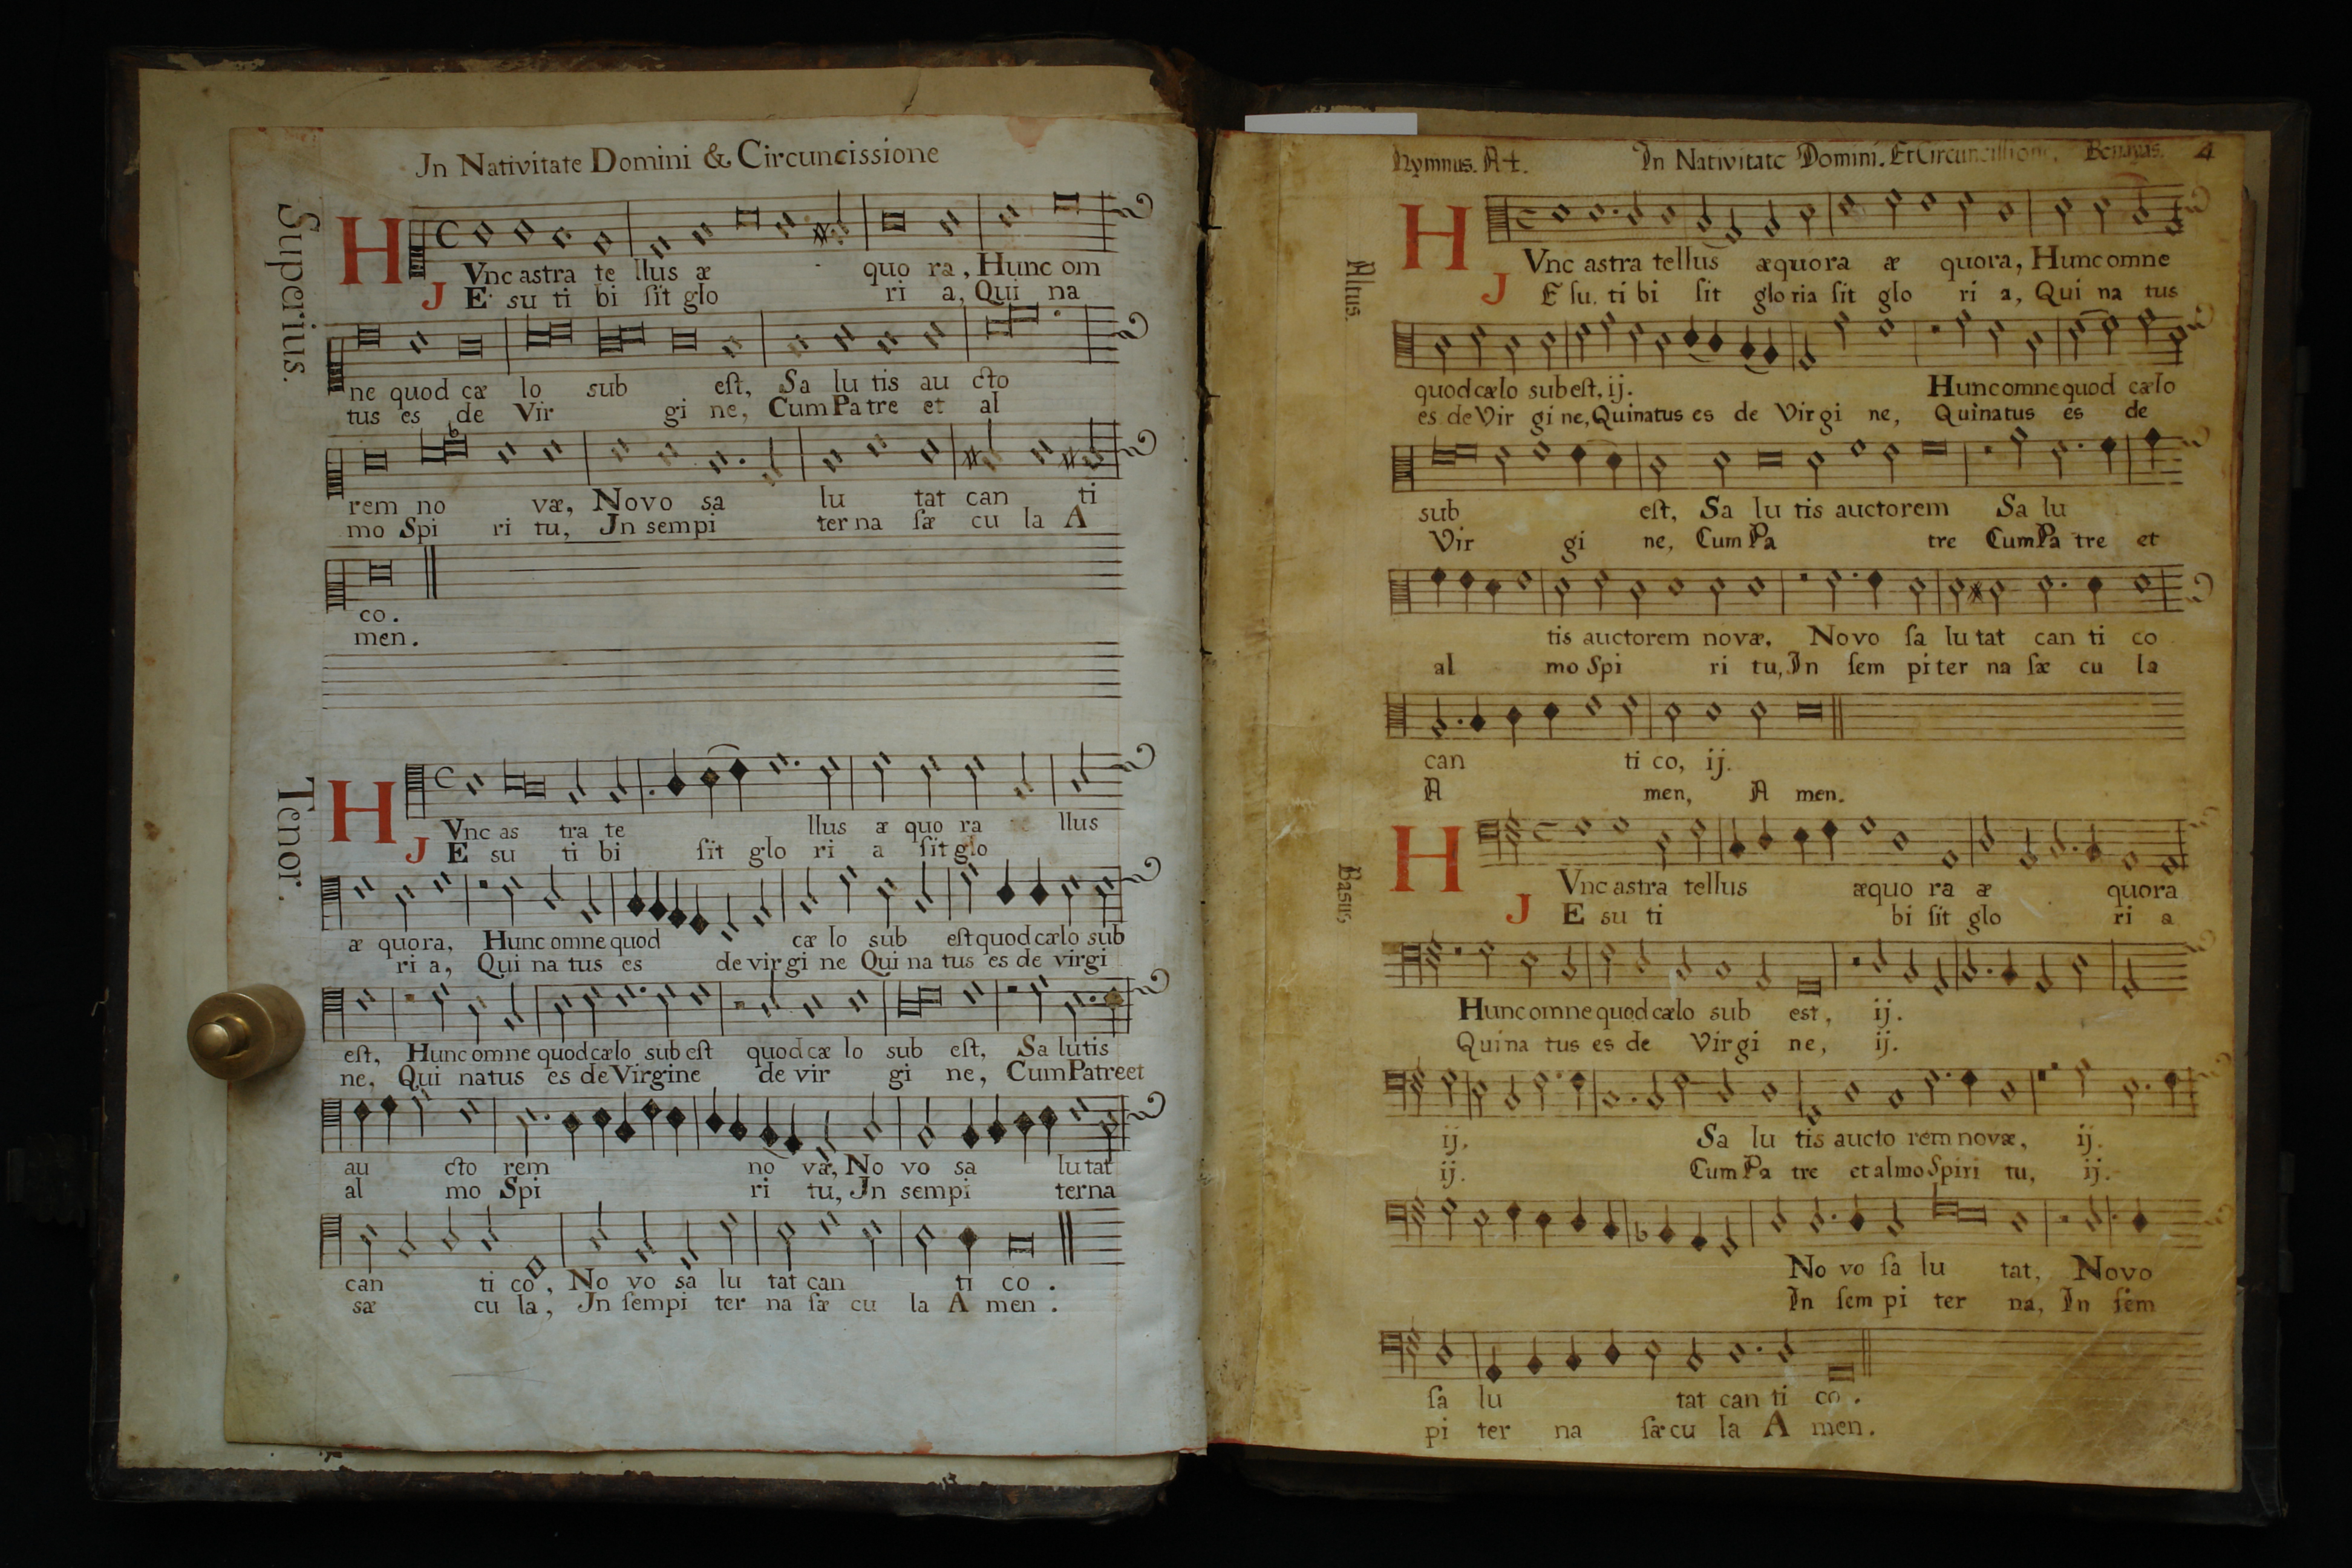 Jn Nativitate Domini & Circuncissione
Superius.
H Vnc astra te llus æ quo ra, Hunc om
J E su ti bi ſit glo ri a, Qui na
ne quod cæ lo sub eſt, Sa lu tis au cto
tus es de Vir gi ne, Cum Pa tre et al
rem no væ, Novo sa lu tat can ti
mo Spi ri tu, Jn sempi ter na ſæ cu la A
co.
men.
Tenor.
H Vnc as tra te llus æ quo ra llus
J E su ti bi ſit glo ri a ſit glo
æ quora, Hunc omne quod cæ lo sub eſt quod cælo sub
ri a, Qui na tus es de vir gi ne Qui na tus es de virgi
eſt, Hunc omne quod cælo sub eſt quod cæ lo sub eſt, Sa lutis
ne, Qui natus es de Virgine de vir gi ne, Cum Patre et
au cto rem no væ, No vo sa lu tat
al mo Spi ri tu, Jn sempi terna
can ti co, No vo sa lu tat can ti co.
sæ cu la, Jn ſempi ter na ſæ cu la A men.
Hymnus. A4. In Nativitate Domini. Et Circuncissione. 4
Altus.
H Vnc astra tellus æquora æ quora, Hunc omne
J E ſu. ti bi ſit glo ria ſit glo ri a, Qui na tus
quod cælo sub eſt, ij. Hunc omne quod cælo
es de Vir gi ne, Qui natus es de Virgi ne, Qui natus es de
sub eſt, Sa lu tis auctorem Sa lu
Vir gi ne, Cum Pa tre Cum Pa tre et
tis auctorem novæ, Novo ſa lu tat can ti co
al mo Spi ri tu, In ſem piter na ſæ cu la
can ti co, ij.
A men, A men.
Basus.
H Vnc astra tellus æquo ra æ quora
J E su ti bi ſit glo ri a
Hunc omne quod cælo sub est, ij.
Qui na tus es de Virgi ne, ij.
ij. Sa lu tis aucto rem novæ, ij.
ij. Cum Pa tre et almo Spiri tu, ij.
No vo ſa lu tat, Novo
In ſem pi ter na, In ſem
ſa lu tat can ti co.
pi ter na ſæcu la A men.